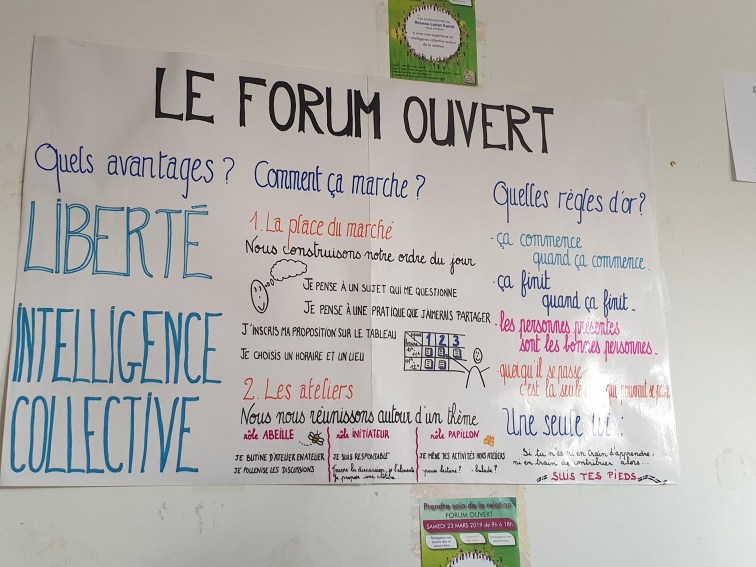 LE FORUM OUVERT
Quels avantages ?
LIBERTÉ
INTELLIGENCE
COLLECTIVE
Comment ça marche ?
1. La place du marché
Nous construisons notre ordre du jour
JE PENSE À UN SUJET QUI ME QUESTIONNE
JE PENSE À UNE PRATIQUE QUE J'AIMERAIS PARTAGER
J'INSCRIS MA PROPOSITION SUR LE TABLEAU
JE CHOISIS UN HORAIRE ET UN LIEU
1 2 3
2. Les ateliers
Nous nous réunissons autour d'un thème
rôle ABEILLE
JE BUTINE D'ATELIER EN ATELIER
JE POLLENISE LES DISCUSSIONS
rôle INITIATEUR
JE SUIS RESPONSABLE
rôle PAPILLON
JE MÈNE DES ACTIVITÉS HORS ATELIERS
pause lecture ? balade ?
Quelles règles d'or ?
- ça commence
quand ça commence.
- ça finit
quand ça finit.
- les personnes présentes
sont les bonnes personnes.
- quoiqu'il se passe
c'est la seule qui pouvait se passer
Une seule loi :
Si tu n'es ni en train d'apprendre,
ni en train de contribuer alors...
SUIS TES PIEDS
Prendre soin de la relation
FORUM OUVERT
SAMEDI 23 MARS 2019 de 9h à 18h